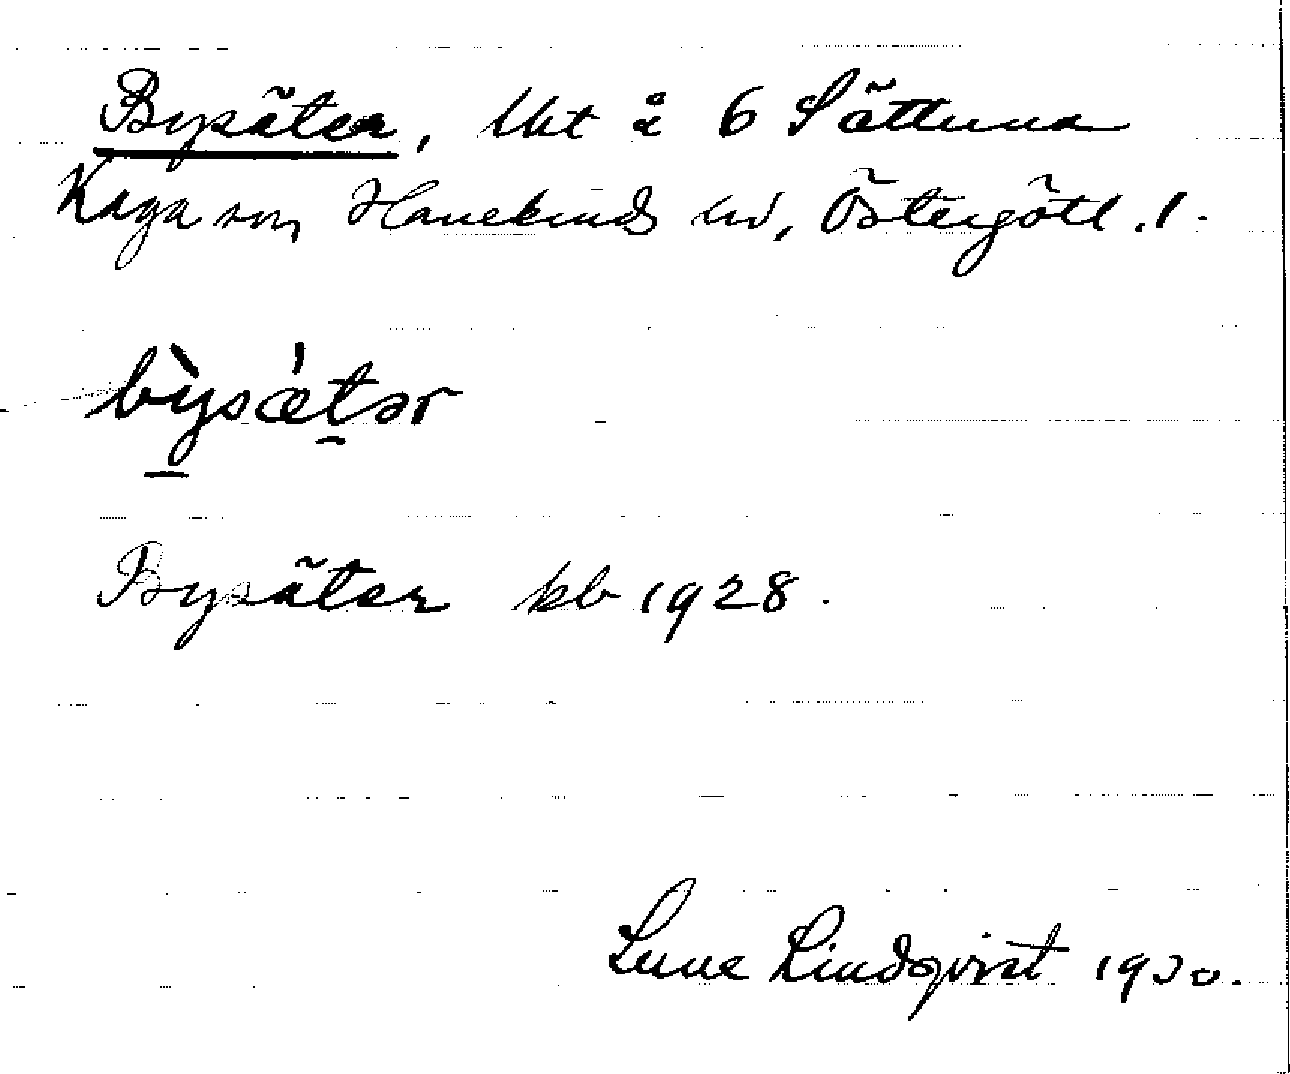 Bysäter, lht å 6 Sättuna
Kaga sn, Hanekinds hd, Östergötl. l.
bỳsǽtər
Bysäter kb 1928.
Sune Lindqvist 1930.